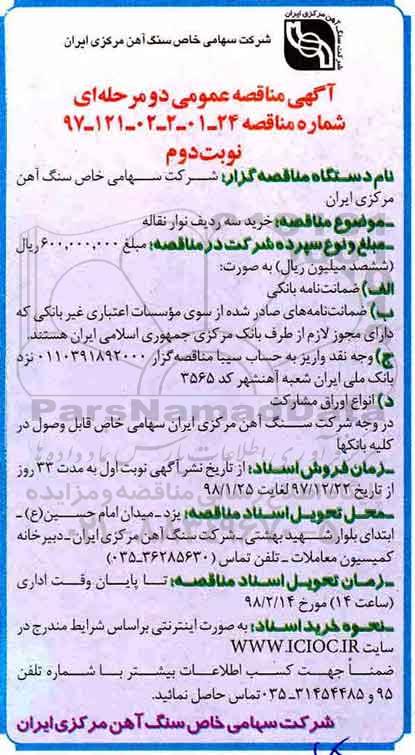 شرکت سنگ آهن مرکزی ایران
شرکت سهامی خاص سنگ آهن مرکزی ایران
آگهی مناقصه عمومی دو مرحله‌ای
شماره مناقصه ۲۴-۰۱-۲-۰۲-۱۲۱-۹۷
نوبت دوم
نام دستگاه مناقصه گزار: شرکت سهامی خاص سنگ آهن
مرکزی ایران
-موضوع مناقصه: خرید سه ردیف نوار نقاله
-مبلغ و نوع سپرده شرکت در مناقصه: مبلغ ۶۰۰,۰۰۰,۰۰۰ ریال
(ششصد میلیون ریال) به صورت:
الف) ضمانت‌نامه بانکی
ب) ضمانت‌نامه‌های صادر شده از سوی مؤسسات اعتباری غیر بانکی که
دارای مجوز لازم از طرف بانک مرکزی جمهوری اسلامی ایران هستند.
ج) وجه نقد واریز به حساب سیبا مناقصه‌گزار ۰۱۱۰۳۹۱۸۹۲۰۰۰ نزد
بانک ملی ایران شعبه آهنشهر کد ۳۵۶۵
د) انواع اوراق مشارکت
در وجه شرکت سنگ آهن مرکزی ایران سهامی خاص قابل وصول در
کلیه بانکها
-زمان فروش اسناد: از تاریخ نشر آگهی نوبت اول به مدت ۳۳ روز
از تاریخ ۹۷/۱۲/۲۲ لغایت ۹۸/۱/۲۵
-محل تحویل اسناد مناقصه: یزد-میدان امام حسین(ع)-
ابتدای بلوار شهید بهشتی-شرکت سنگ آهن مرکزی ایران-دبیرخانه
کمیسیون معاملات-تلفن تماس (۳۶۲۸۵۶۳۰-۰۳۵)
-زمان تحویل اسناد مناقصه: تا پایان وقت اداری
(ساعت ۱۴) مورخ ۹۸/۲/۱۴
-نحوه خرید اسناد: به صورت اینترنتی براساس شرایط مندرج در
سایت WWW.ICIOC.IR
ضمناً جهت کسب اطلاعات بیشتر با شماره تلفن
۹۵ و ۳۱۴۵۴۴۸۵-۰۳۵ تماس حاصل نمائید.
شرکت سهامی خاص سنگ آهن مرکزی ایران
ParsNamadData